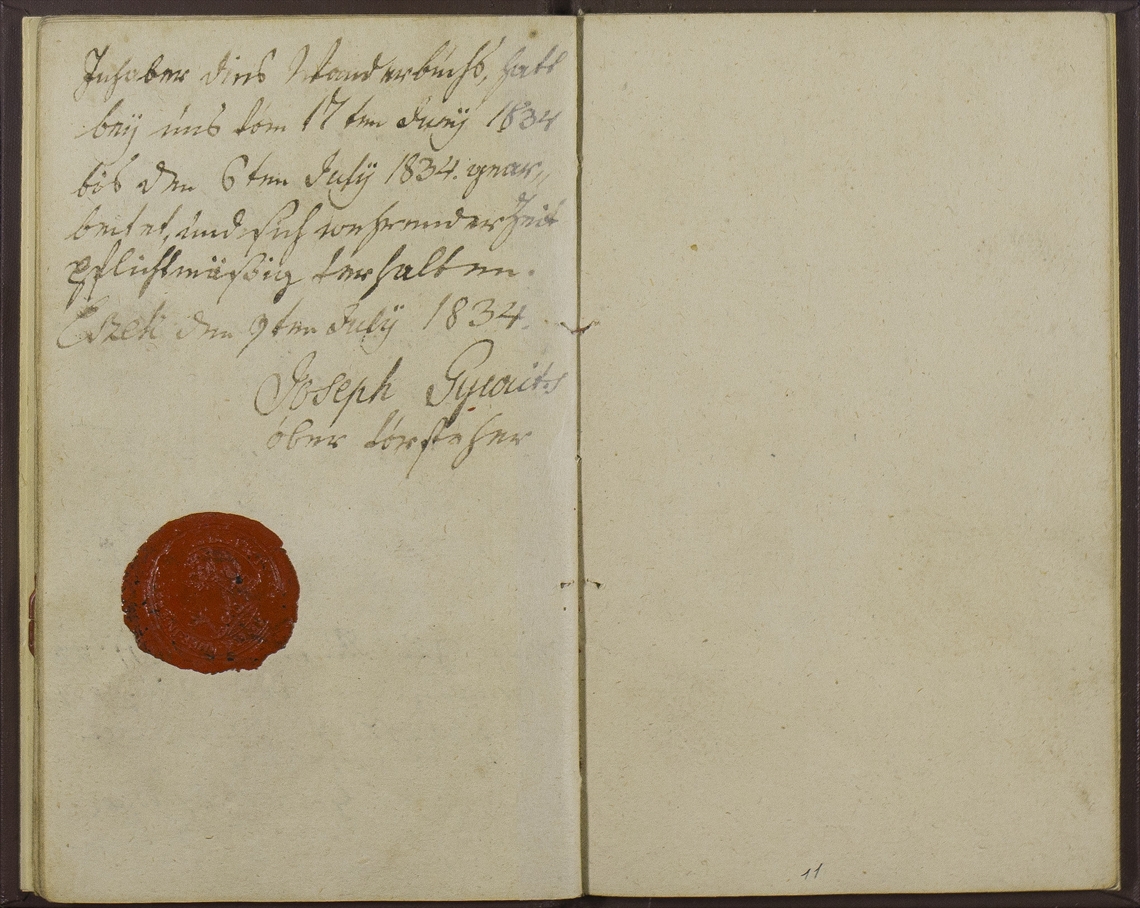 Inhaber dies Wanderbuchs, hatt
beÿ uns vom 17ten Junÿ 1834
bis den 6ten Julÿ 1834. gear„
beitet, und sich wehrender Zeit
pflichtmäßig verhalten.
Eszek den 9ten Julÿ 1834.
Joseph
ober vorsteher
11